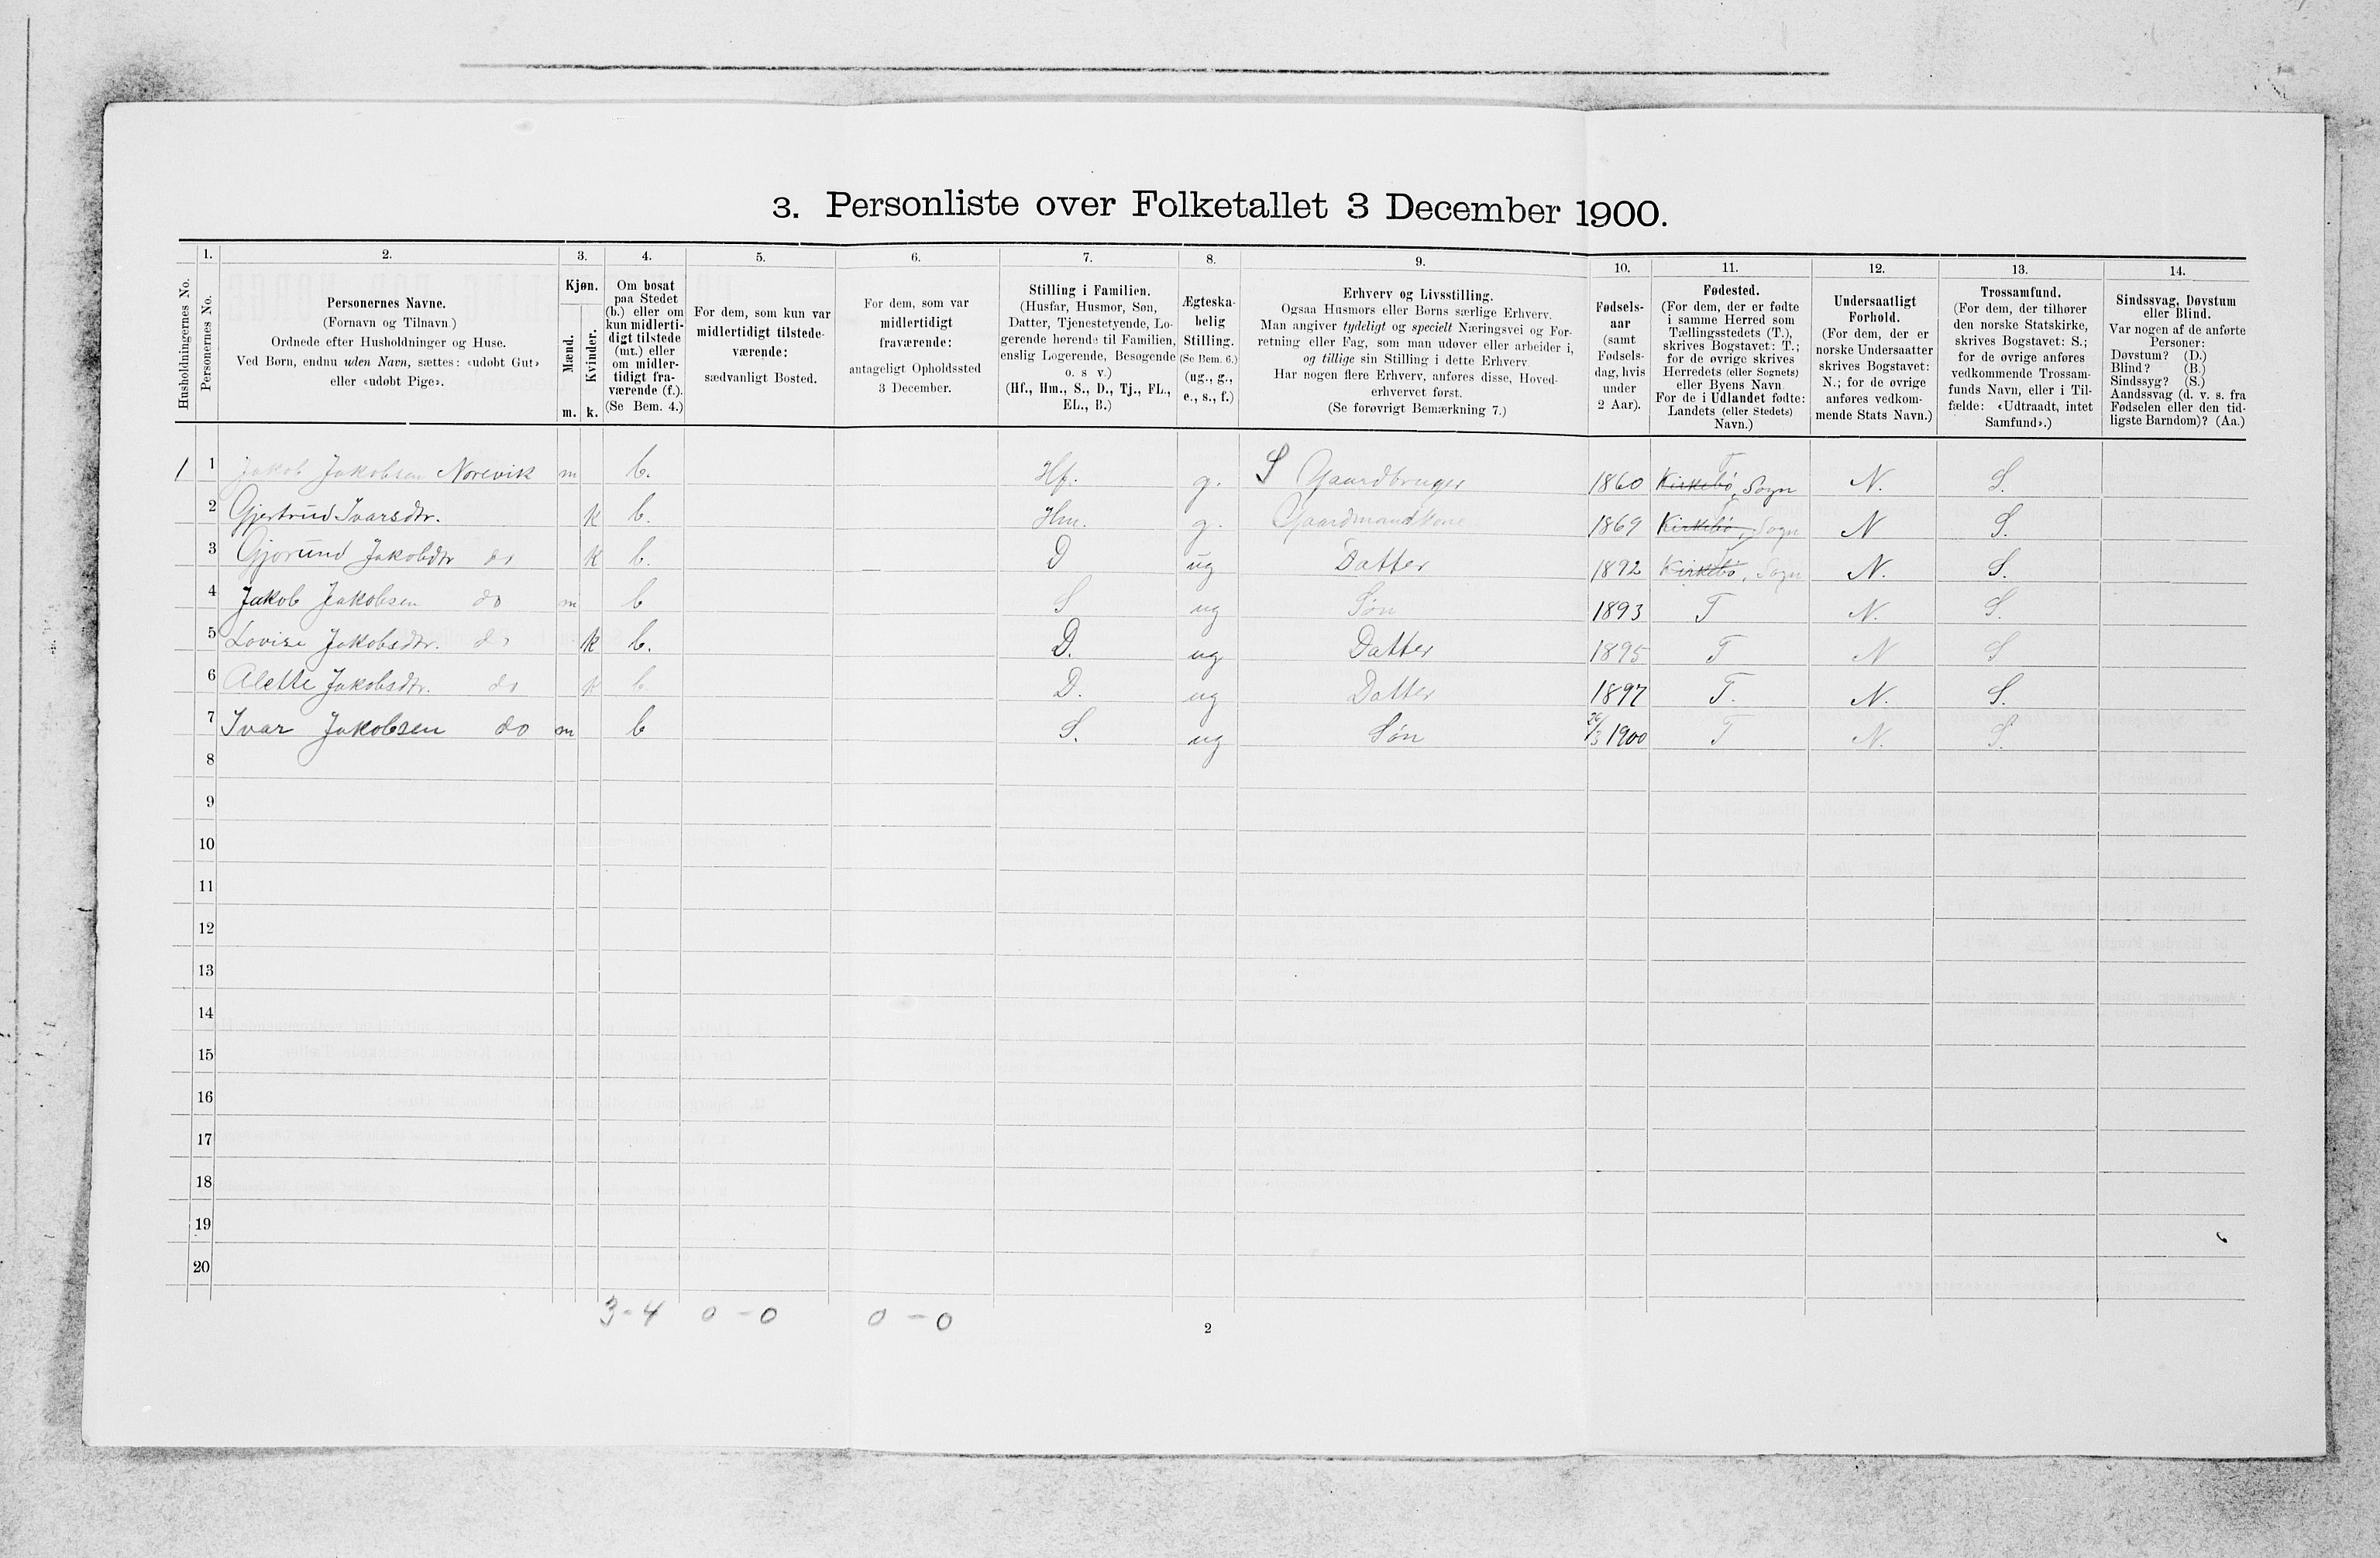 3. Personliste over Folketallet 3 December 1900.
Husholdningernes No.
1.
Personernes No.
2.
Personernes Navne.
(Fornavn og Tilnavn)
Ordnede efter Husholdninger og Huse.
Ved Børn, endnu uden Navn, sættes: «udøbt Gut»
eller «udøbt Pige».
3.
Kjøn.
Mænd.
Kvinder.
m. k.
4.
Om bosat
paa Stedet
(b.) eller om
kun midlerti-
digt tilstede
(mt.) eller
om midler-
tidigt fra-
værende (f.).
(Se Bem. 4.)
5.
For dem, som kun var
midlertidigt tilstede-
værende:
sædvanligt Bosted.
6.
For dem, som var
midlertidigt
fraværende:
antageligt Opholdssted
3 December.
7.
Stilling i Familien.
(Husfar, Husmor, Søn,
Datter, Tjenestetyende, Lo-
gerende hørende til Familien,
enslig Logerende, Besøgende
o. s v.)
(Hf., Hm., S., D., Tj., FL.,
EL., B.)
8.
Ægteska-
belig
Stilling.
(Se Bem. 6.)
(ug., g.,
e., s., f.)
9.
Erhverv og Livsstilling.
Ogsaa Husmors eller Børns særlige Erhverv.
Man angiver tydeligt og specielt Næringsvei og For-
retning eller Fag, som man udøver eller arbeider i,
og tillige sin Stilling i dette Erhverv.
Har nogen flere Erhverv, anføres disse, Hoved-
erhvervet først.
(Se forøvrigt Bemærkning 7.)
10.
Fødsels-
aar
(samt
Fødsels-
dag, hvis
under
2 Aar).
11.
Fødested.
(For dem, der er fødte
i samme Herred som
Tællingsstedets (T.),
skrives Bogstavet: T.;
for de øvrige skrives
Herredets (eller Sognets)
eller Byens Navn
For de i Udlandet fødte:
Landets (eller Stedets)
Navn.)
12.
Undersaatligt
Forhold.
(For dem, der er
norske Undersaatter
skrives Bogstavet:
N.; for de øvrige
anføres vedkom-
mende Stats Navn.)
13.
Trossamfund.
(For dem, der tilhører
den norske Statskirke,
skrives Bogstavet: S.;
for de øvrige anføres
vedkommende Trossam-
funds Navn, eller i Til-
fælde: «Udtraadt, intet
Samfund».)
14.
Sindssvag, Døvstum
eller Blind.
Var nogen af de anførte
Personer:
Døvstum? (D.)
Blind? (B.)
Sindssyg? (S.)
Aandssvag (d. v. s. fra
Fødselen eller den tid-
ligste Barndom)? (Aa.)
1 1 Jakob Jakobsen Norevik m b. Hf. g. S Gaardbruger 1860 Kirkebø, Sogn T N. S.
2 Gjertrud Ivarsdtr. k b. Hm. g. Gaardmandskone 1869 Kirkebø, Sogn T N S.
3 Gjorund Jakobdtr do k b. D ug Datter 1892 Kirkebø, Sogn T N. S.
4 Jakob Jakobsen do m b S ug Søn 1893 T N. S.
5 Lovise Jakobsdtr. do k b. D. ug Datter 1895 T N S
6 Alette Jakobsdtr. do k b. D. ug Datter 1897 T. N. S.
7 Ivar Jakobsen do m b S. ug Søn 26/3 1900 T N. S.
8
9
10
11
12
13
14
15
16
17
18
19
20
3-4 0-0 0-0
2